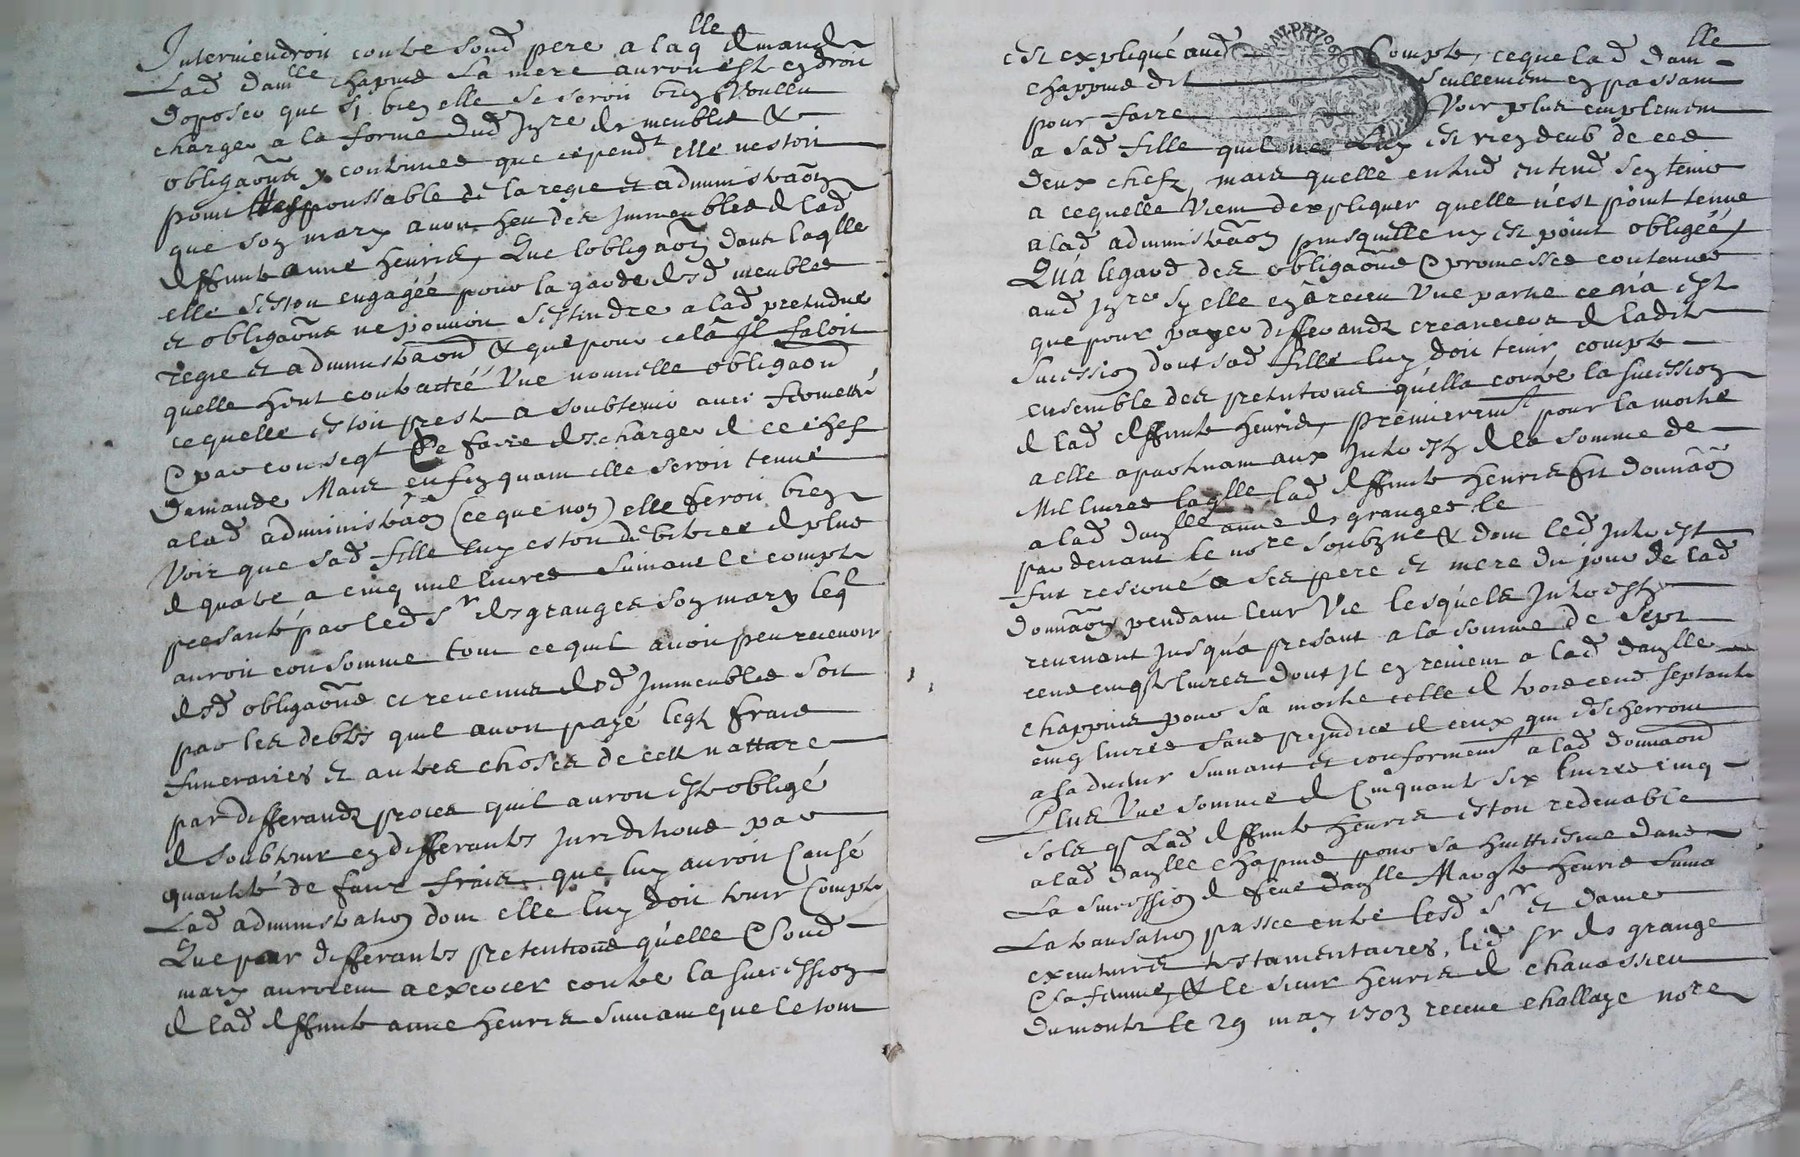 Interviendroit contre soud pere a laqlle demande
Lad damlle chapuis sa mere auroit esté en droit
doposer que sy bien elle se seroit bien voullu
charger a la forme dud Invre des meubles &
obligaõns y contenues que cependt elle nestoit
point Responssable de la regie et administraõn
que son mary avoit heu des Immeubles de lad
deffunte anne henrie, Que lobligaõn dans laqlle
elle sestoit engagée pour la garde desd meubles
et obligaõns ne pouvoit sestendre a lad pretendue
regie et administraõnd & que pour cela Il faloit
quelle heut contractée Une nouvelle obligaõn
ce quelle estoit preste a soubtenir avec fermetté
& par conseqt se faire descharger de ce chef
demande Mais enfin quant elle seroit tenue
a lad administraõn (ce que non) elle feroit bien
Voir que sad fille luy estoit debitrice de plus
de quatre a cinq mil livres suivant le compte
presanté par led sr desgranges son mary leql
auroit consommé tout ce quil avoit peu recevoir
desd obligaõns et revenus desd Immeubles soit
par les debtes quil avoit payé legt fraits
funeraires et autres choses de cette natture
par differands proces quil auroit esté obligé
de soubtenir en differantes Juriditions par
quantité de faux fraits que luy auroit causé
Lad administration dont elle luy doit tenir Compte
Que par differantes pretentions quelle & soud
mary auroient a exercer contre la sucession
de lad deffunte anne henrie suivant que le tout
est expliqué aud Compte, ce que lad damlle
chappuis dit seullement en passant
pour faire Voir plus emplement
a sad fille quil ne luy est rien deub de ces
deux chefz mais quelle entend sen tenir
a ce quelle vient dexpliquer quelle n'est point tenue
a lad administraõn puisquelle ny est point obligée,
Qu'a legard des obligaõns & promesses contenues
aud Invre sy elle en a receu Une partie ce n'a esté
que pour payer differands creanciers de ladite
sucession dont sad fille luy doit tenir compte
ensemble des pretentions qu'ella contre la sucession
de lad deffunte henrie, premieremt pour la moitié
a elle apartenant aux Interests de la somme de
Mil livres laqlle lad deffunte henrie fit donnaõn
a lad daylle anne desgranges le
par devant le nore soubzne & dont led Interest
fut reservé a ses pere et mere du jour de lad
donnaõn pendant leur Vie lesquels Interests
revenant jusqu'a presant a la somme de Sept
cens cinqte livres dont Il en revient a lad daylle
chappuis pour sa moitié celle de trois cens septante
cinq livres sans prejudice de ceux qui escherront
a ladvenir suivant et conformement a lad donnaõnd
Plus Une somme de Cinquante six livres cinq
sols qe Lad deffunte henrie estoit redevable
a lad daylle chapuis pour sa huittiesme dans
La sucession de feue daylle Margte henrie suivt
La transation passee entre lesd Sr et dame
executeurs testamentaires, led sr desgrange
& sa femme, & le sieur henrie de chavassieu
dumonts le 29 may 1703 receue challaye nore